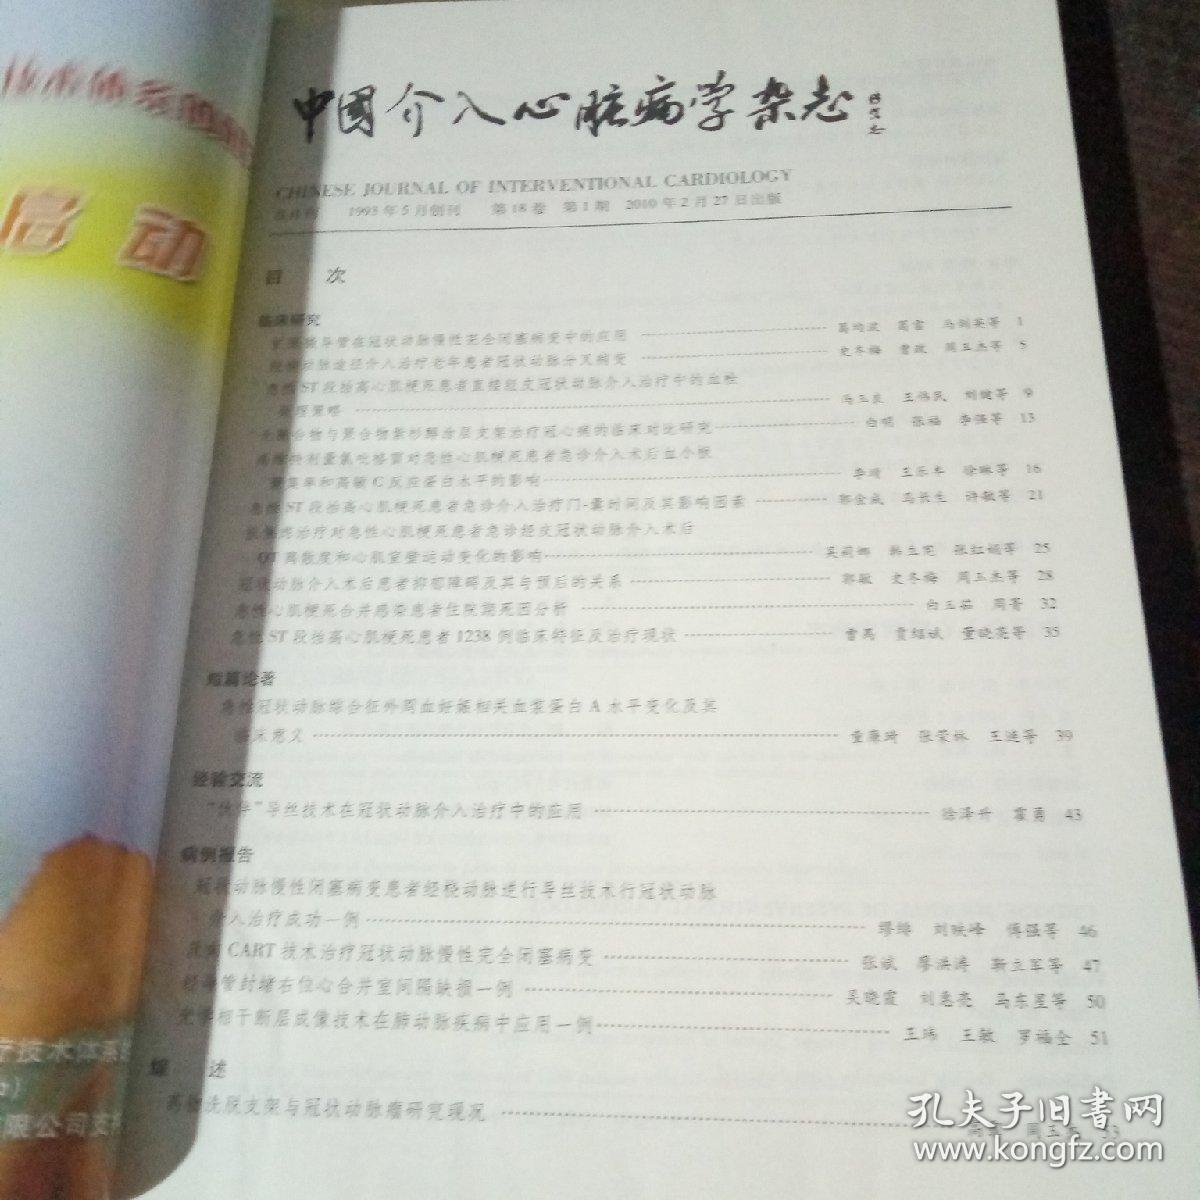 技术体系的
启动
中國介入心脏病学杂志
CHINESE JOURNAL OF INTERVENTIONAL CARDIOLOGY
双月刊 1993年5月创刊 第18卷 第1期 2010年2月27日出版
目 次
临床研究
导管在冠状动脉慢性完全闭塞病变中的应用 葛均波 葛雷 马剑英等 1
动脉途径介入治疗老年患者冠状动脉分叉病变 史冬梅 曹政 周玉杰等 5
急性ST段抬高心肌梗死患者直接经皮冠状动脉介入治疗中的血栓
策略 冯玉良 王伟民 刘健等 9
无聚合物与聚合物紫杉醇涂层支架治疗冠心病的临床对比研究 白明 张福 李强等 13
剂量氯吡格雷对急性心肌梗死患者急诊介入术后血小板
聚集率和高敏C反应蛋白水平的影响 李靖 王乐丰 徐琳等 16
急性ST段抬高心肌梗死患者急诊介入治疗门-囊时间及其影响因素 郭金成 马长生 许敏等 21
治疗对急性心肌梗死患者急诊经皮冠状动脉介入术后
QT离散度和心肌室壁运动变化的影响 吴莉娜 韩立宪 张红娟等 25
冠状动脉介入术后患者抑郁障碍及其与预后的关系 郭敏 史冬梅 周玉杰等 28
急性心肌梗死合并感染患者住院期死因分析 白玉茹 周菁 32
急性ST段抬高心肌梗死患者1238例临床特征及治疗现状 曹禹 贾绍斌 董晓亮等 35
短篇论著
急性冠状动脉综合征外周血妊娠相关血浆蛋白A水平变化及其
临床意义 童肇琦 张荣林 王连等 39
经验交流
“伙伴”导丝技术在冠状动脉介入治疗中的应用 徐泽升 霍勇 43
病例报告
冠状动脉慢性闭塞病变患者经桡动脉逆行导丝技术行冠状动脉
介入治疗成功一例 缪绯 刘映峰 傅强等 46
反向CART技术治疗冠状动脉慢性完全闭塞病变 张斌 廖洪涛 靳立军等 47
经导管封堵右位心合并室间隔缺损一例 吴晓霞 刘惠亮 马东星等 50
光学相干断层成像技术在肺动脉疾病中应用一例 王玮 王敏 罗福全 51
综 述
药物洗脱支架与冠状动脉瘤研究现况 周玉 53
疗技术体系
有限公司支持
孔夫子旧书网
www.kongfz.com